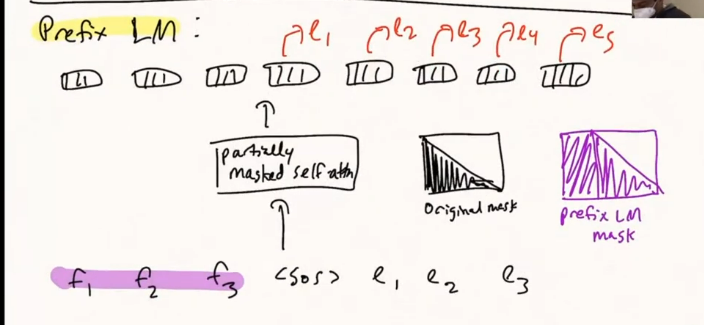 Prefix LM:
e1 e2 e3 e4 e5
partially
masked self attn
original mask
prefix LM
mask
f1 f2 f3 <sos> e1 e2 e3